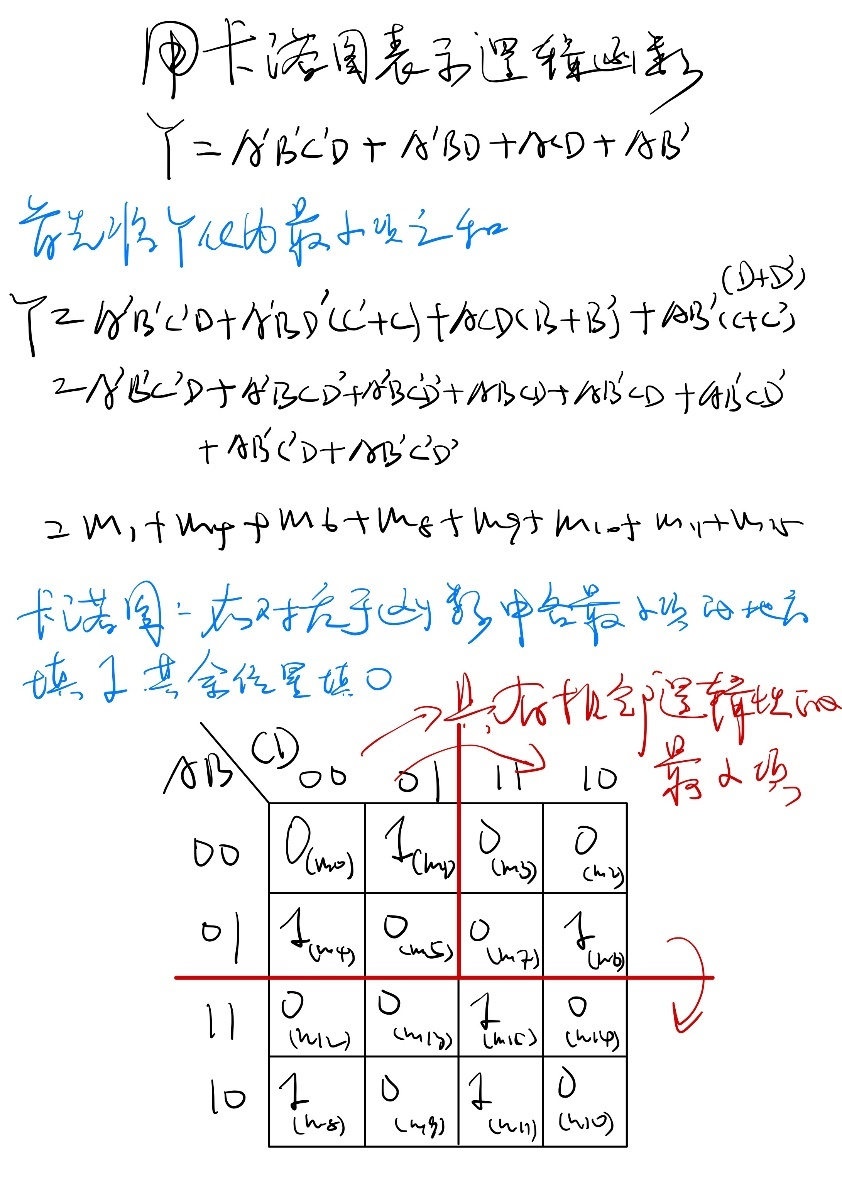 用卡诺图表示逻辑函数
Y = A'B'C'D + A'BD + ACD + AB'
首先将Y化为最小项之和
(D+D')
Y = A'B'C'D + A'BD'(C'+C) + ACD(B+B') + AB'(C+C')
= A'B'C'D + A'BCD' + A'BC'D' + ABCD + AB'CD + AB'CD'
+ AB'C'D + AB'C'D'
= m1 + m4 + m6 + m8 + m9 + m10 + m11 + m15
卡诺图:在对应于函数中各最小项的地方
填1 其余位置填0
具有相邻逻辑性的
最小项
AB CD 00 01 11 10
00 0(m0) 1(m1) 0(m3) 0(m2)
01 1(m4) 0(m5) 0(m7) 1(m6)
11 0(m12) 0(m13) 1(m15) 0(m14)
10 1(m8) 0(m9) 1(m11) 0(m10)